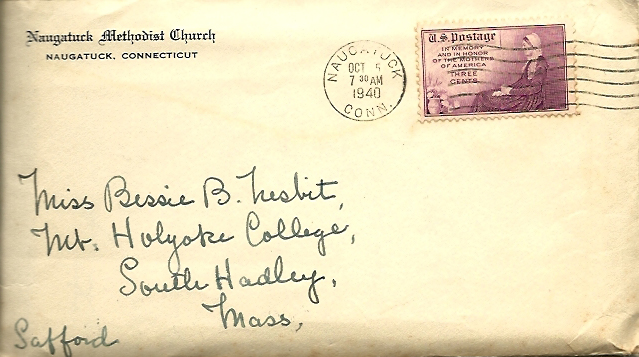 Naugatuck Methodist Church
NAUGATUCK, CONNECTICUT
NAUGATUCK
OCT 5
7 30 AM
1940
CONN.
U.S. Postage
IN MEMORY
AND IN HONOR
OF THE MOTHERS
OF AMERICA
THREE
CENTS
Miss Bessie B. Nesbit,
Mt. Holyoke College,
South Hadley,
Mass,
Safford